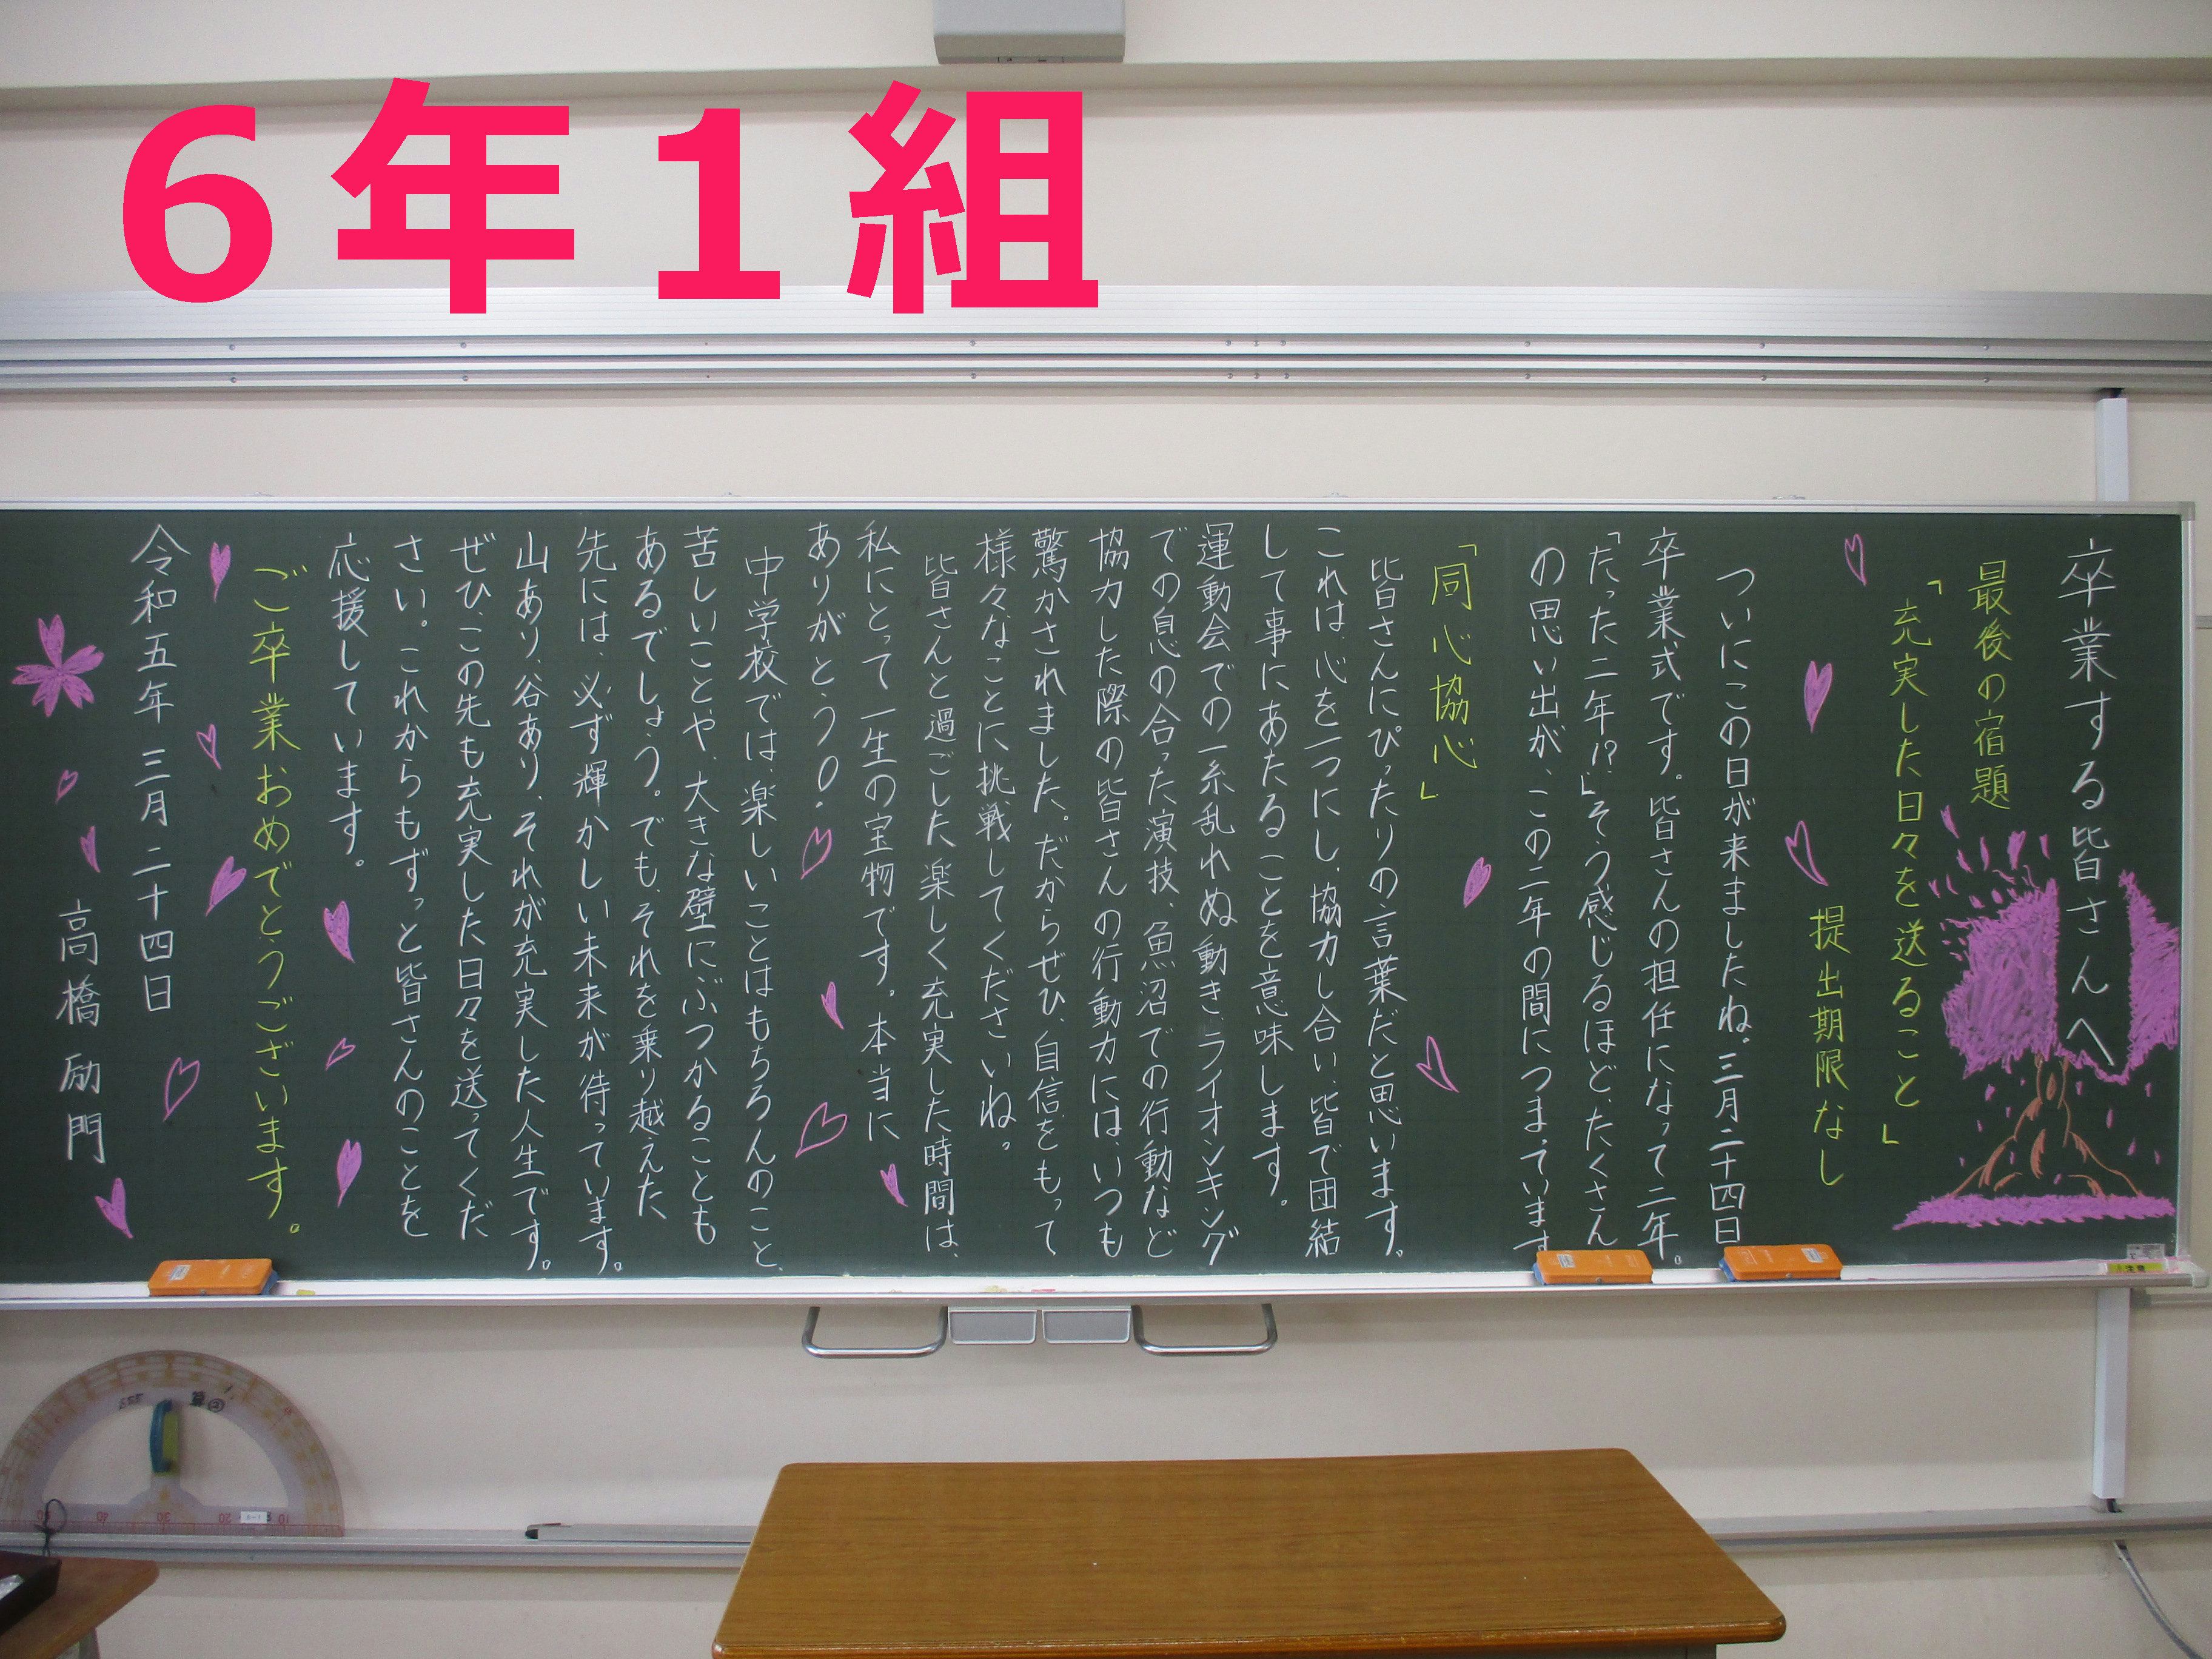 6年1組
卒業する皆さんへ
最後の宿題
「充実した日々を送ること」
提出期限なし
ついにこの日が来ましたね。三月二十四日
卒業式です。皆さんの担任になって二年。
「たった二年!?」そう感じるほど、たくさん
の思い出が、この二年の間につまっています
「同心協心」
皆さんにぴったりの言葉だと思います。
これは、心を一つにし、協力し合い、皆で団結
して事にあたることを意味します。
運動会での一糸乱れぬ動き、ライオンキング
での息の合った演技、魚沼での行動など
協力した際の皆さんの行動力には、いつも
驚かされました。だからぜひ、自信をもって
様々なことに挑戦してくださいね。
皆さんと過ごした楽しく充実した時間は、
私にとって一生の宝物です。本当に
ありがとう!
中学校では、楽しいことはもちろんのこと、
苦しいことや、大きな壁にぶつかることも
あるでしょう。でも、それを乗り越えた
先には、必ず輝かしい未来が待っています。
山あり、谷あり、それが充実した人生です。
ぜひ、この先も充実した日々を送ってくだ
さい。これからもずっと皆さんのことを
応援しています。
ご卒業おめでとうございます。
令和五年 三月 二十四日
高橋 励門